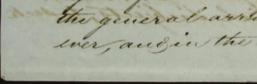 the general
ever, and in the